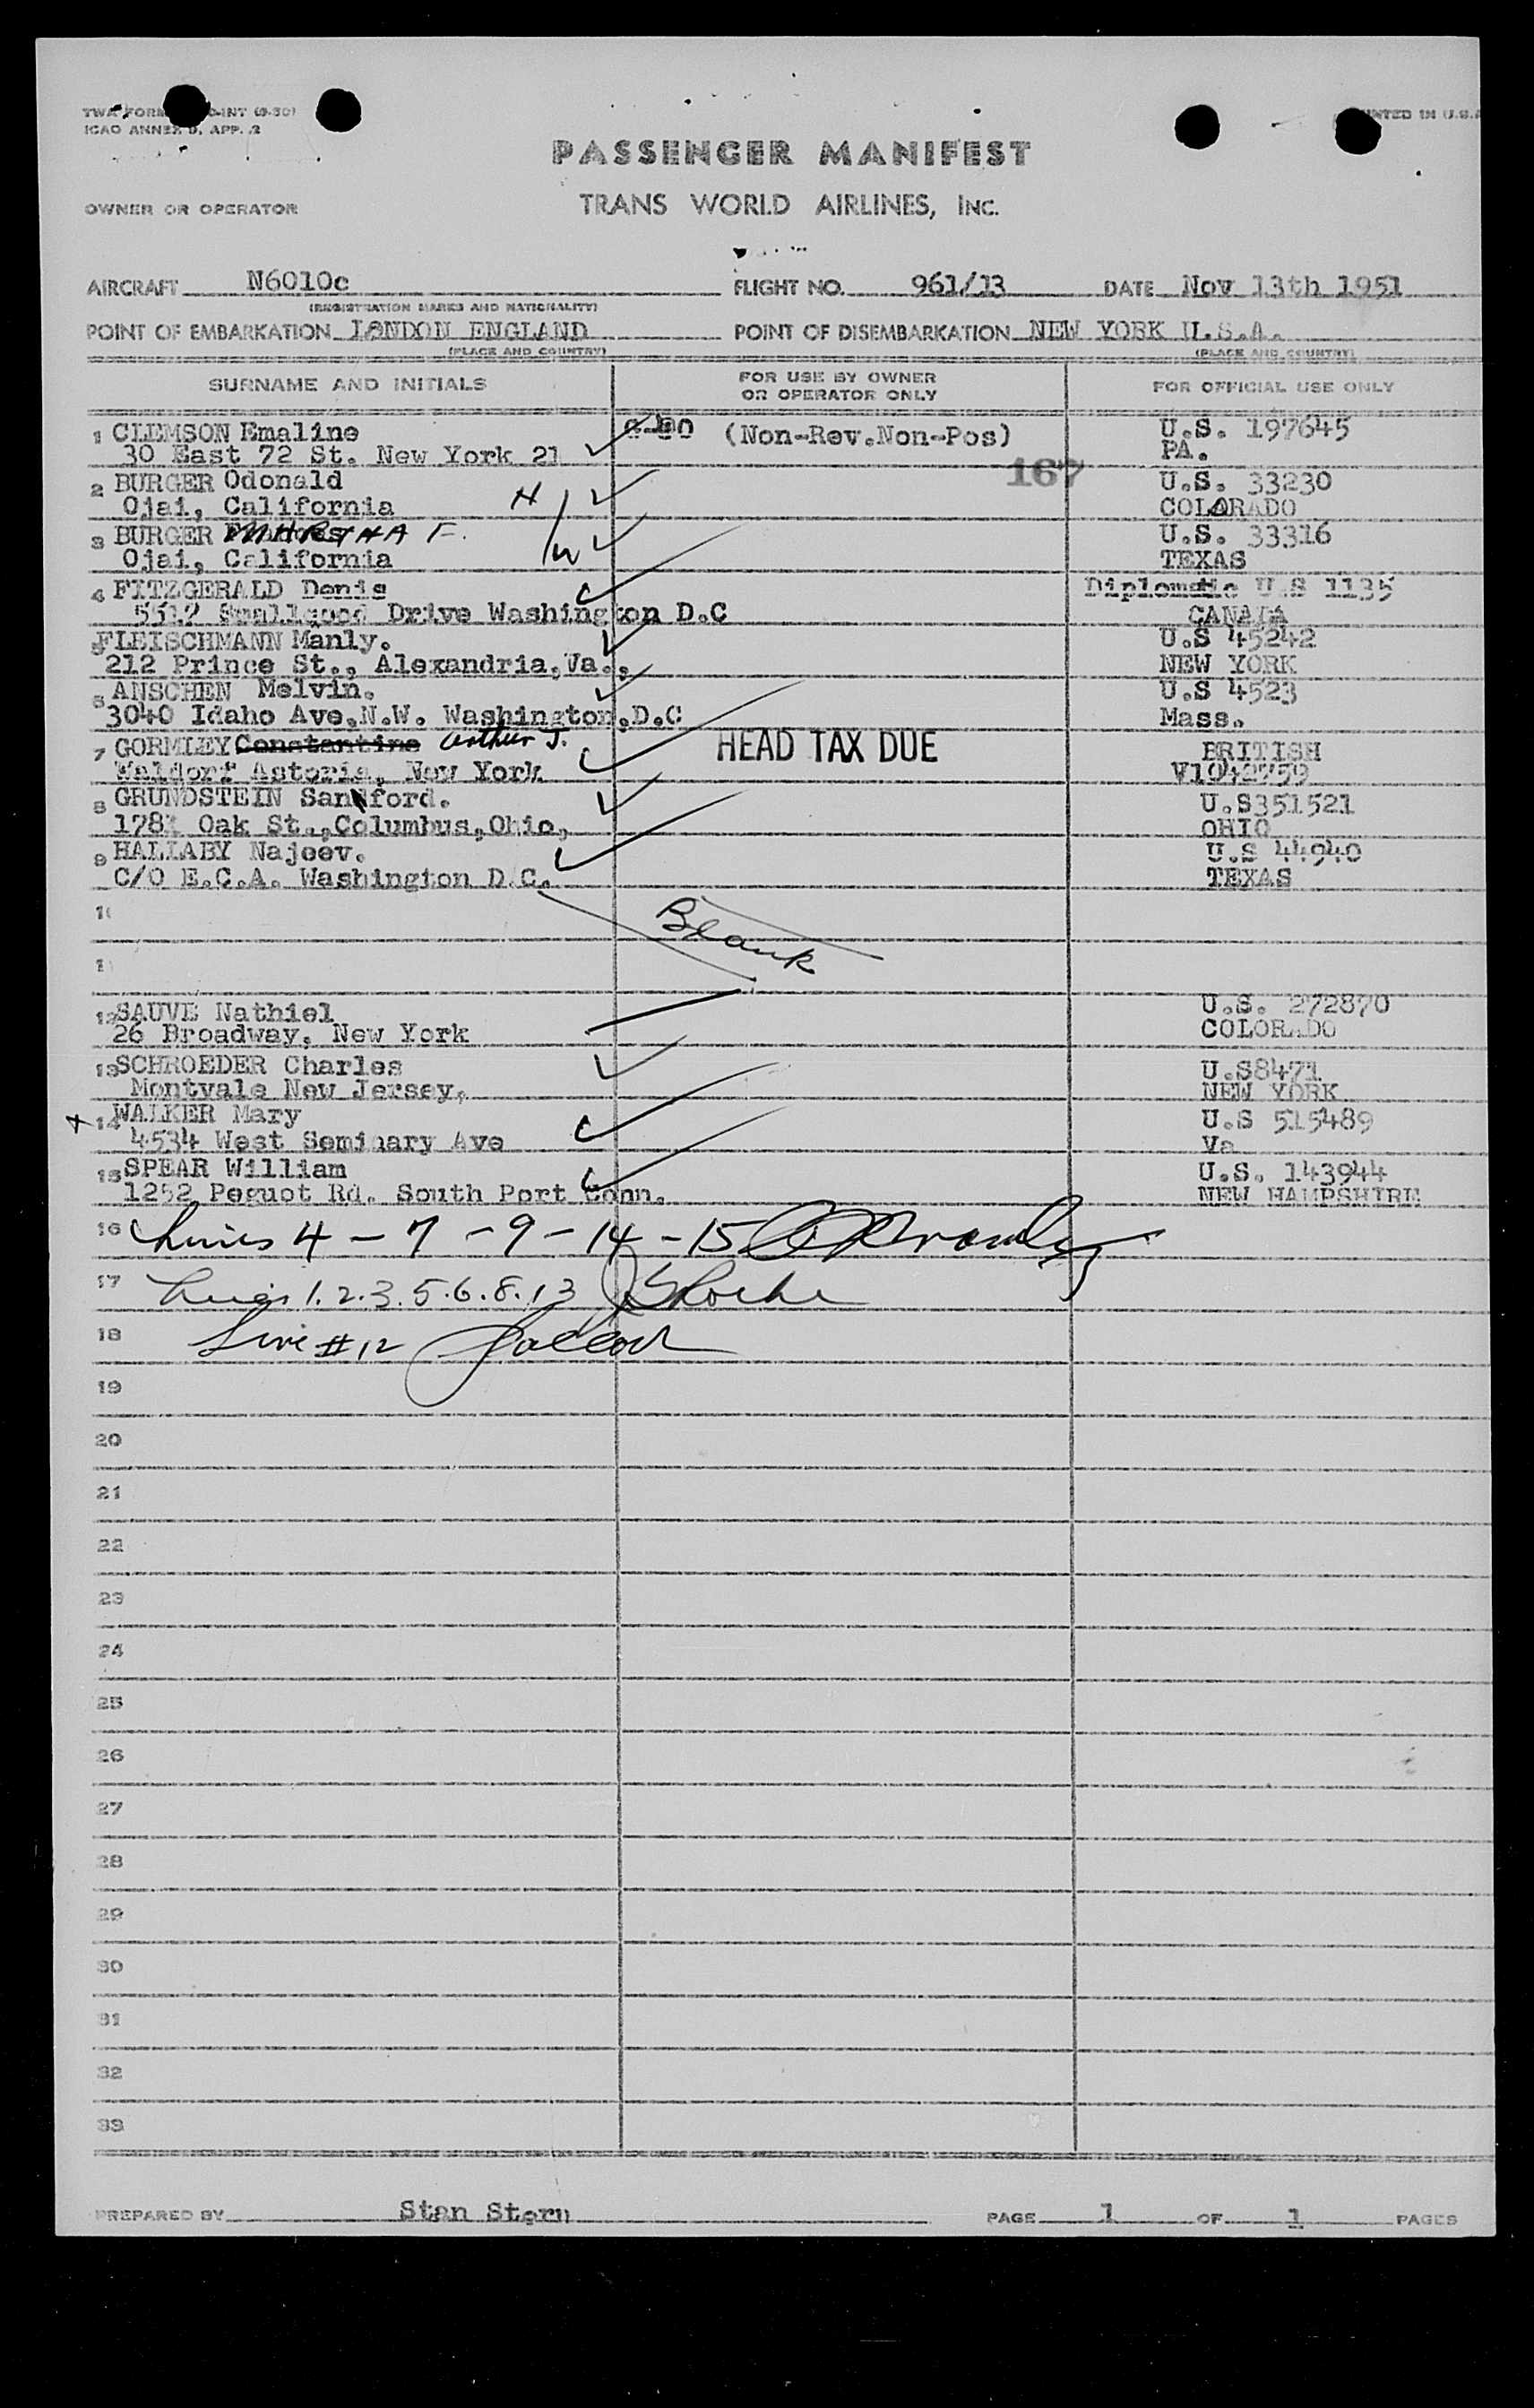 ICAO ANNEX 9, APP. 2
PASSENGER MANIFEST
OWNER OR OPERATOR TRANS WORLD AIRLINES, INC.
AIRCRAFT N6010c FLIGHT NO. 961/13 DATE Nov 13th 1951
(REGISTRATION MARKS AND NATIONALITY)
POINT OF EMBARKATION LONDON ENGLAND POINT OF DISEMBARKATION NEW YORK U.S.A.
(PLACE AND COUNTRY) (PLACE AND COUNTRY)
SURNAME AND INITIALS FOR USE BY OWNER OR OPERATOR ONLY FOR OFFICIAL USE ONLY
1 CLEMSON Emaline (Non-Rev.Non-Pos) U.S. 197645
30 East 72 St. New York 21 PA.
167
2 BURGER Odonald H U.S. 33230
Ojai, California COLORADO
3 BURGER MARTHA F. U.S. 33316
Ojai, California W TEXAS
4 FITZGERALD Denis Diplomatic U.S 1135
5512 Drive Washington D.C CANADA
5 FLEISCHMANN Manly. U.S 45242
212 Prince St., Alexandria,Va., NEW YORK
6 ANSCHEN Melvin. U.S 4523
3040 Idaho Ave.N.W. Washington.D.C Mass.
7 GORMLEY Constantine Arthur J. HEAD TAX DUE BRITISH
Waldorf Astoria, New York V1942759
8 GRUNDSTEIN Sanford. U.S351521
Oak St.,Columbus,Ohio, OHIO
9 HALLABY Najeev. U.S 44940
C/O E.C.A. Washington D.C. TEXAS
10 Blank
11
12 SAUVE Nathiel U.S. 272870
26 Broadway, New York COLORADO
13 SCHROEDER Charles U.S8471
Montvale New Jersey, NEW YORK
x 14 WALKER Mary U.S 515489
4534 West Seminary Ave Va
15 SPEAR William U.S. 143944
1252 Pequot Rd. South Port Conn. NEW HAMPSHIRE
16 Lines 4 - 7 - 9 - 14 - 15
17 Lines 1.2.3.5.6.8.13
18 Line #12
19
20
21
22
23
24
25
26
27
28
29
30
31
32
33
PREPARED BY Stan Stern PAGE 1 OF 1 PAGES